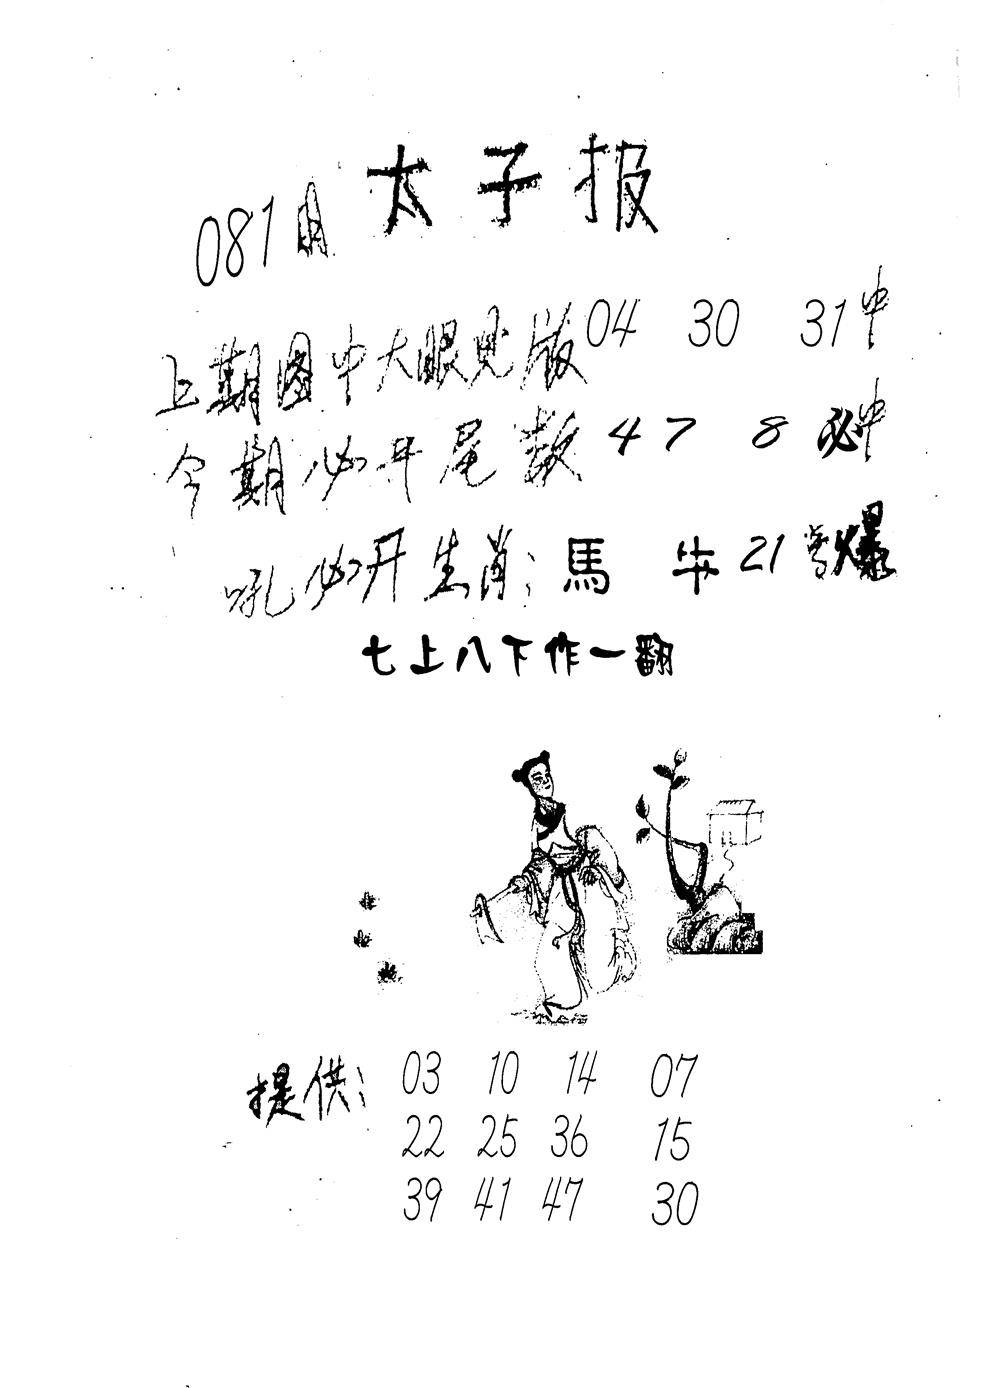 太子报
081期
上期图中大眼见版04 30 31中
今期必开尾数 4 7 8 必中
吼必开生肖：馬 牛 21 爆
七上八下作一翻
提供： 03 10 14 07
22 25 36 15
39 41 47 30